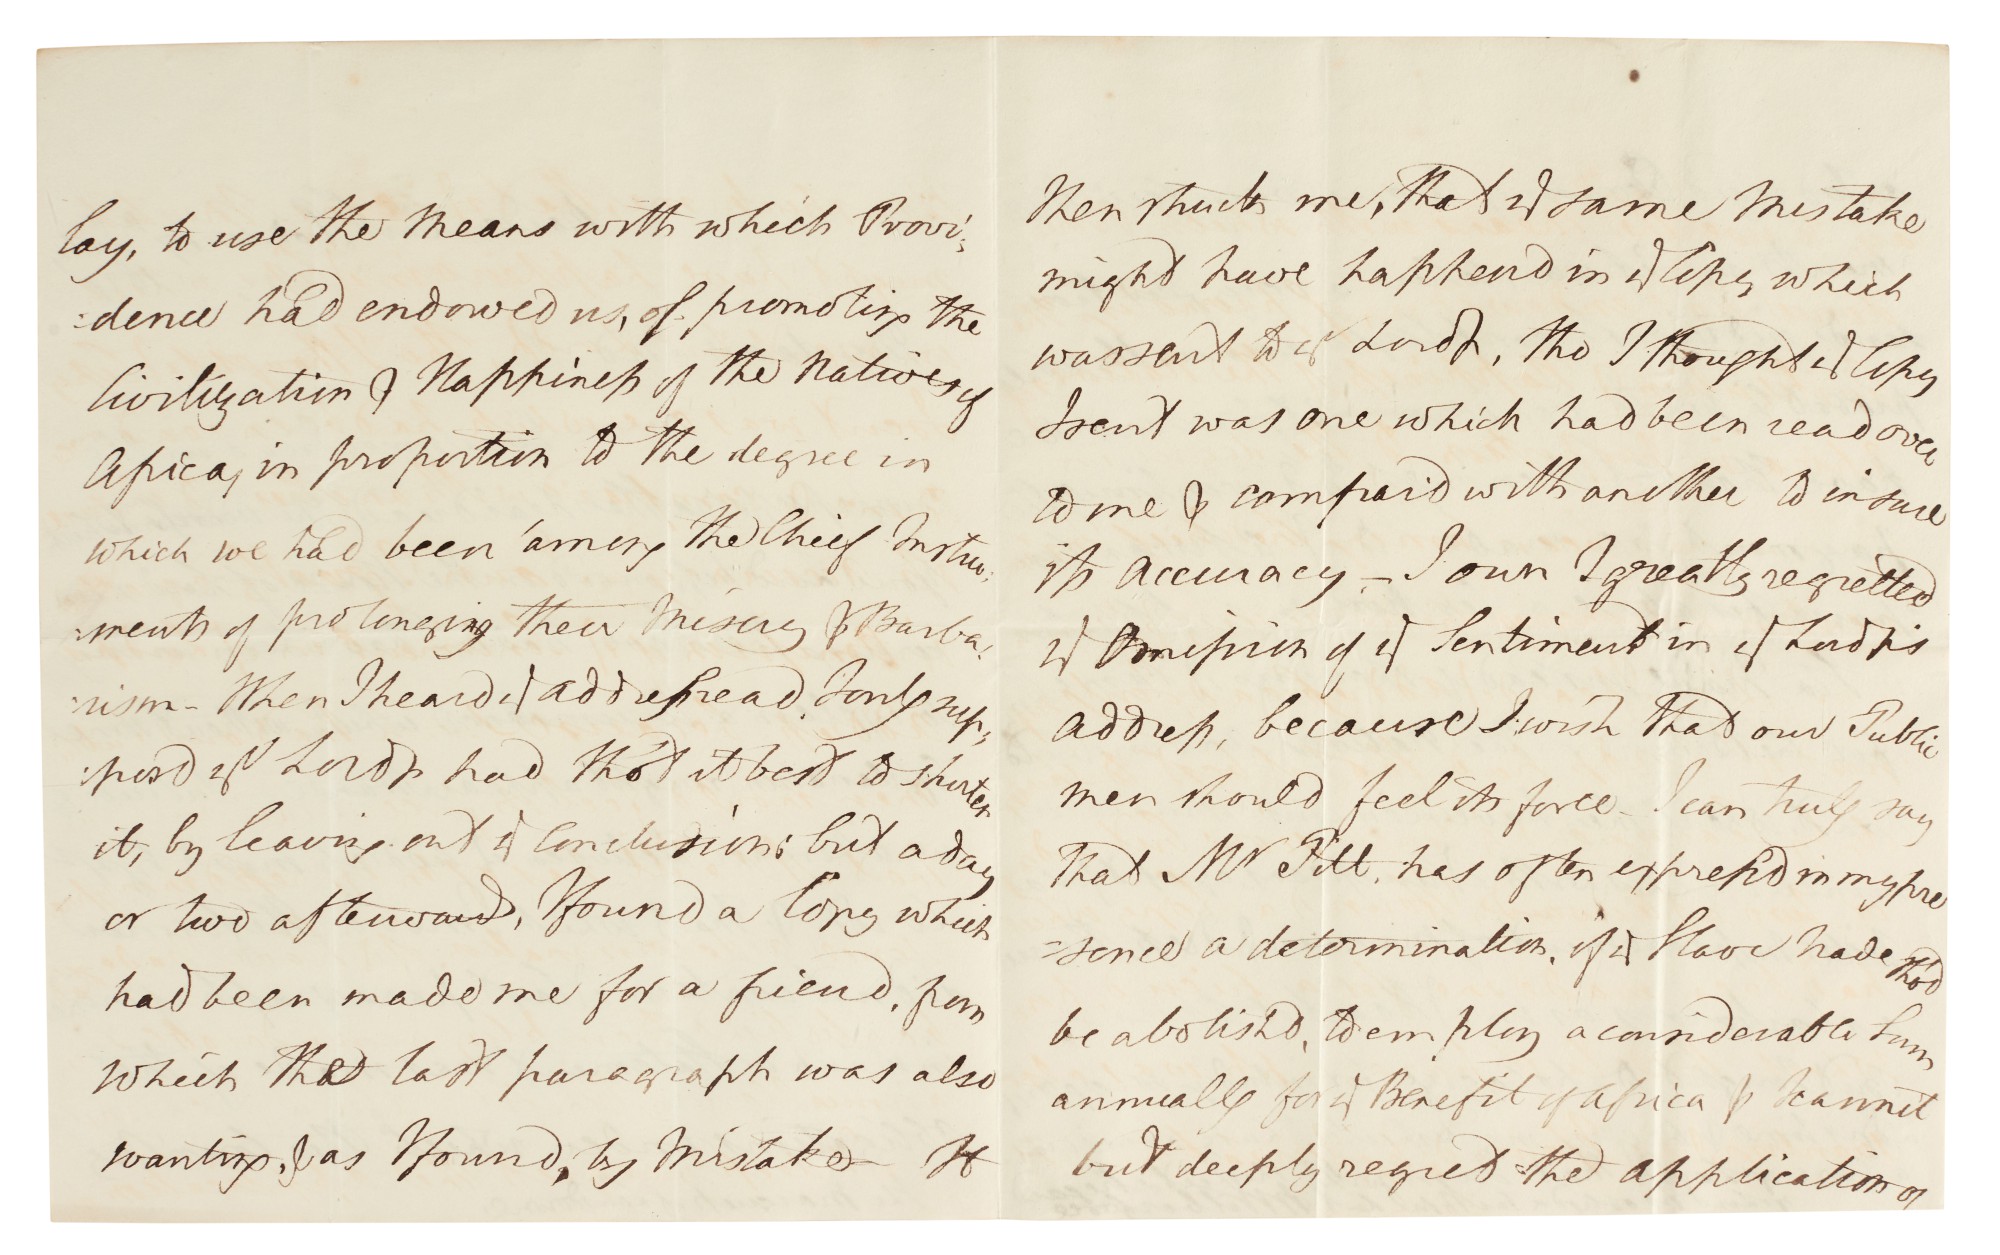 lay, to use the Means with which Provi:
:dence had endowed us, of promoting the
Civilization & Happiness of the Natives of
Africa, in proportion to the degree in
which we had been among the Chief Instru:
:ments of prolonging their Misery & Barba:
:rism - When I heard ye address read I only sup:
:pos'd yr Lordp had thot it best to shorten
it, by leaving out ye Conclusion; but a day
or two afterwards, I found a Copy which
had been made me for a friend, from
which that last paragraph was also
wanting, & as I found, by Mistake - It
then struck me, that ye same Mistake
might have happend in ye Copy which
was sent to yr Lordp, tho I thought ye Copy
I sent was one which had been read over
to me & compar'd with another to insure
its Accuracy - I own I greatly regretted
ye Omission of ye Sentiment in ye Lordp's
Address, because I wish that our Public
men should feel its force - I can truly say
that Mr Pitt, has often express'd in my pre
:sence a determination, if ye Slave Trade shod
be abolish'd, to employ a considerable Sum
annually for ye Benefit of Africa & I cannot
but deeply regret the application of